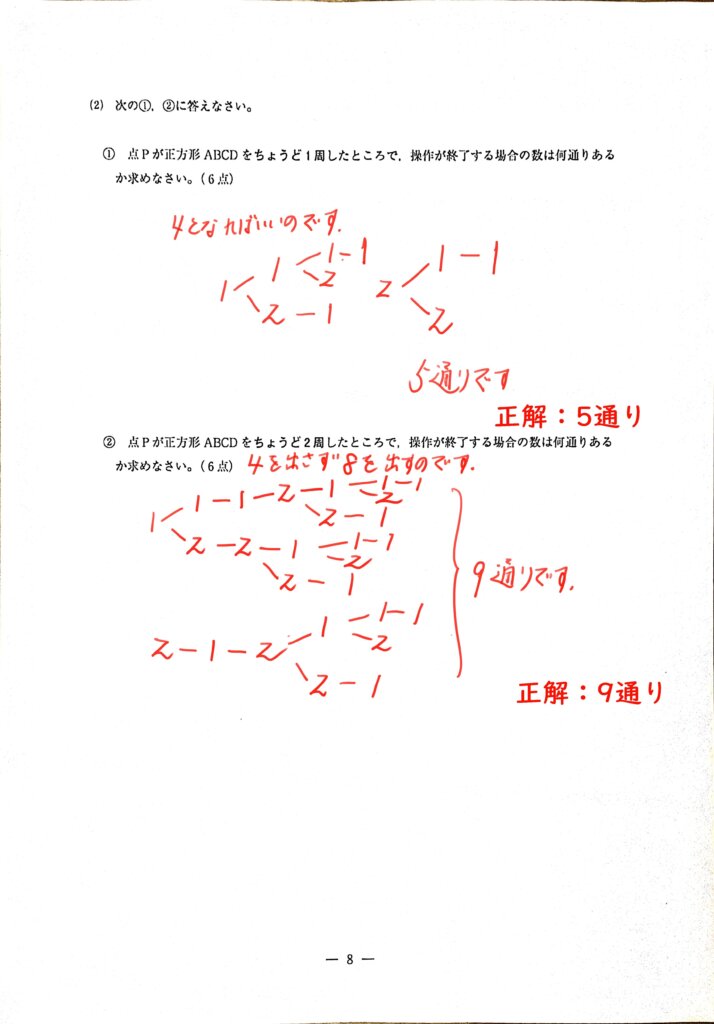 (2) 次の①，②に答えなさい。
① 点Pが正方形ABCDをちょうど1周したところで，操作が終了する場合の数は何通りある
か求めなさい。(6点)
4となればいいのです.
1 1 1-1
2
2-1
2 1-1
2
5通りです
正解：5通り
② 点Pが正方形ABCDをちょうど2周したところで，操作が終了する場合の数は何通りある
か求めなさい。(6点) 4を出さず8を出すのです.
1 1-1-2-1 1-1
2
2-1
2-2-1 1-1
2
2-1
9通りです.
2-1-2 1 1-1
2
2-1
正解：9通り
— 8 —